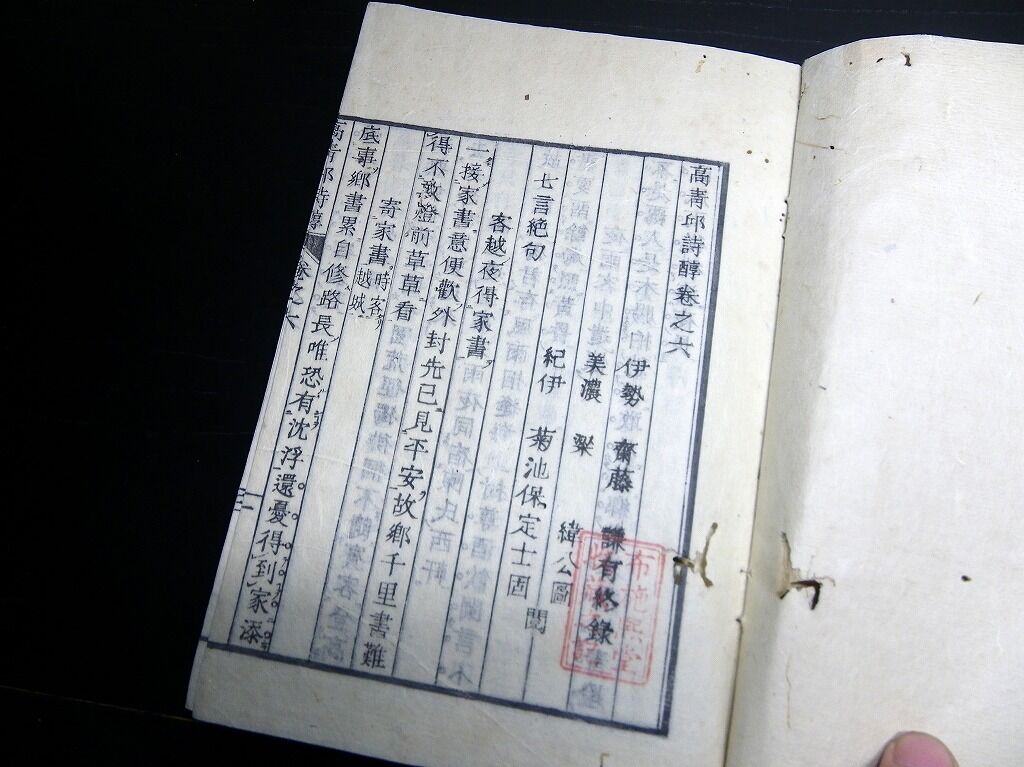 高青邱詩醇卷之六
伊勢 齋藤 謙有終錄
美濃 梁 緯公圖
紀伊 菊池保定士固
閱
七言絶句
客越夜得家書
一接家書意便歡外封先已見平安故鄉千里書難
得不敢燈前草草看
寄家書時客越城
底事鄉書累自修路長唯恐有沈浮還憂得到家添
高青邱詩醇 卷之六